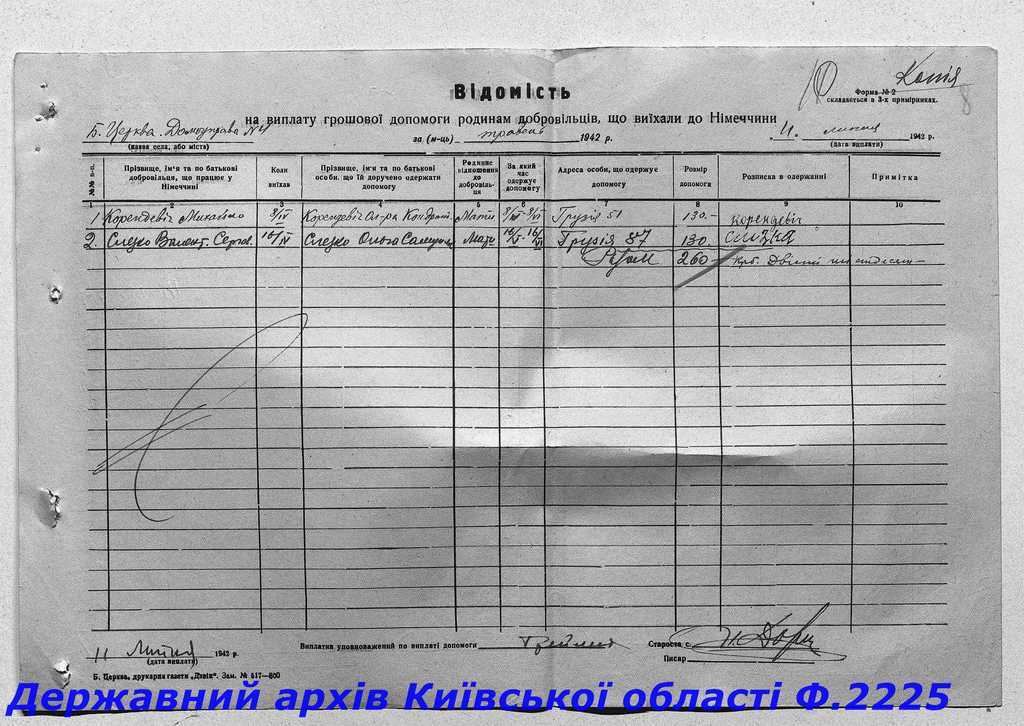 Копія
Форма № 2
складається в 3-х примірниках.
8
Відомість
на виплату грошової допомоги родинам добровільців, що виїхали до Німеччини
Б. Церква. Домоуправа №
(назва села, або міста)
за (м-ць) травень 1942 р.
11 липня 1942 р.
(дата виплати)
№№ п-п.
Прізвище, ім'я та по батькові добровільця, що працює у Німеччині
Коли виїхав
Прізвище, ім'я та по батькові особи, що їй доручено одержати допомогу
Родинне відношення до добровільця
За який час одержує допомогу
Адреса особи, що одержує допомогу
Розмір допомоги
Розписка в одержанні
Примітка
1 2 3 4 5 6 7 8 9 10
1 Корендевіч Михайло 9/IV Корендевіч Мати Грузія 51 130.- Корендевіч
2. Слезко Валент. Серг. 16/IV Слезко Ольга Мати Грузія 87 130.
Разом 260- Крб. Двісті шістдесят
11 Липня 1942 р.
(дата виплати)
Виплатив уповноважений по виплаті допомоги
Староста с.
Писар
Б. Церква, друкарня газети „Дзвін“. Зам. № 417—800
Державний архів Київської області Ф.2225